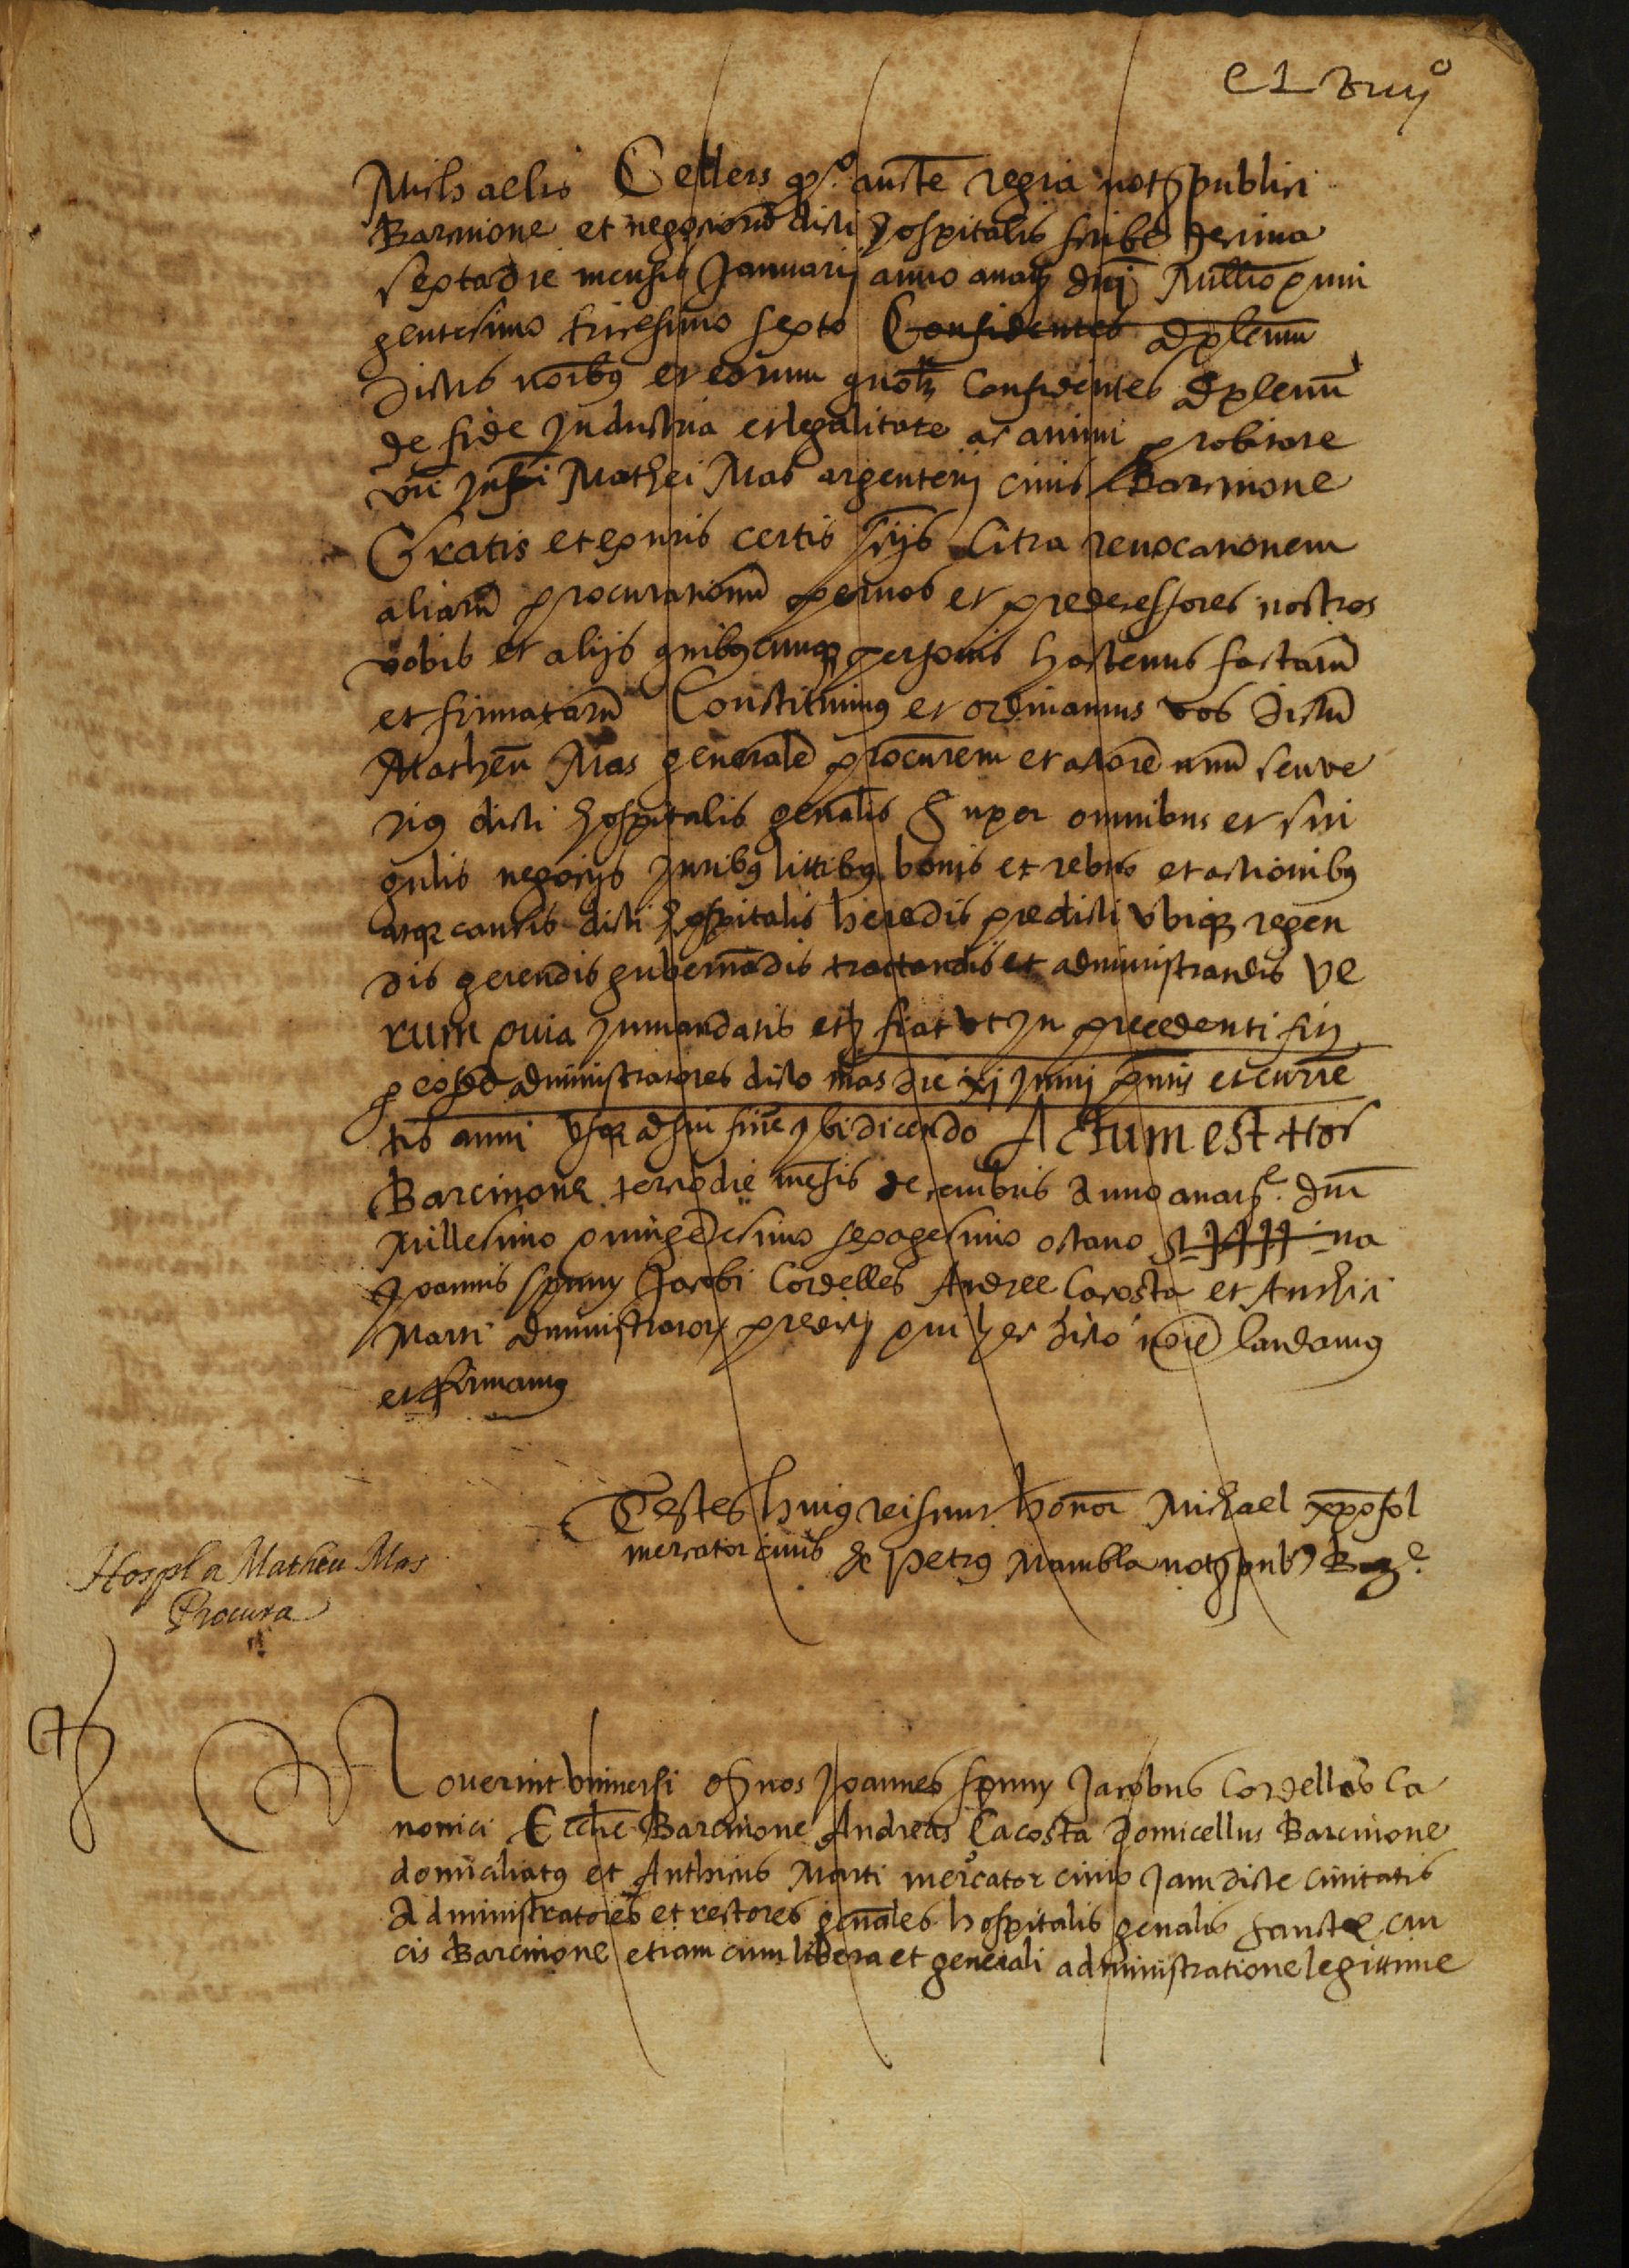 Michaelis Cellers q.º aucte regia not publici
Barcinone et negociorũ dicti hospitalis scribe decima
septa die mensis Januarij anno a natᵗ dñj Millio quin
gentesimo tricesimo sexto Confidentes ad plenum
dictis noibus et eorum quolꝫ Confidentes ad plenũ
de fide Industria et legalitate ac animi probitate
vri Mathei Mas argenterij civis Barcinone
Gratis et ex nris certis scijs Citra revocationem
aliarũ procurationũ per nos et predecessores nostros
vobis et alijs quibuscumqꝫ personis hactenus factarũ
et firmatarũ Constituimus et ordinamus vos dictũ
Matheũ Mas generalẽ procurem et actorẽ unũ seu ve
rius dicti hospitalis genalis Super omnibus et sin
gulis negocijs Juribus littibus bonis et rebus et actionibus
atqꝫ causis dicti hospitalis heredis predicti ubiqꝫ regen
dis gerendis gubernãdis tractandis et administrandis Ve
rum quia In mandatis etc fiat ut In precedenti fir
administratores dicto mas die xj Junij pntis et curre
tis anni usqꝫ ad sui fine Ibi dicendo Actum est hoc
Barcinone tercio die mẽsis decembris Anno a natᵉ. dñi
Millesimo quingẽtesimo sexagesimo octavo na
Joannis spuny Jacobi Cordelles Andree Cacosta et Anthici
Marti administratorꝫ predictꝫ qui hec dicto noie laudamus
et firmamus
Testes huius rei sunt honor Michael xpofol
mercator civis & Petrus Mambla not pubˢ Barᵉ.
Hospl a Matheu Mas
Procura
Noverint Universi qꝫ nos Joannes spuny Jacobus Cordelles Ca
nonici Ecclie Barcinone Andreas Cacosta domicellus Barcinone
domiciliatus et Anthicus Marti mercator civis Jam dicte civitatis
Administratores et rectores genales hospitalis genalis sancte cru
cis Barcinone etiam cum libera et generali administratione legittime